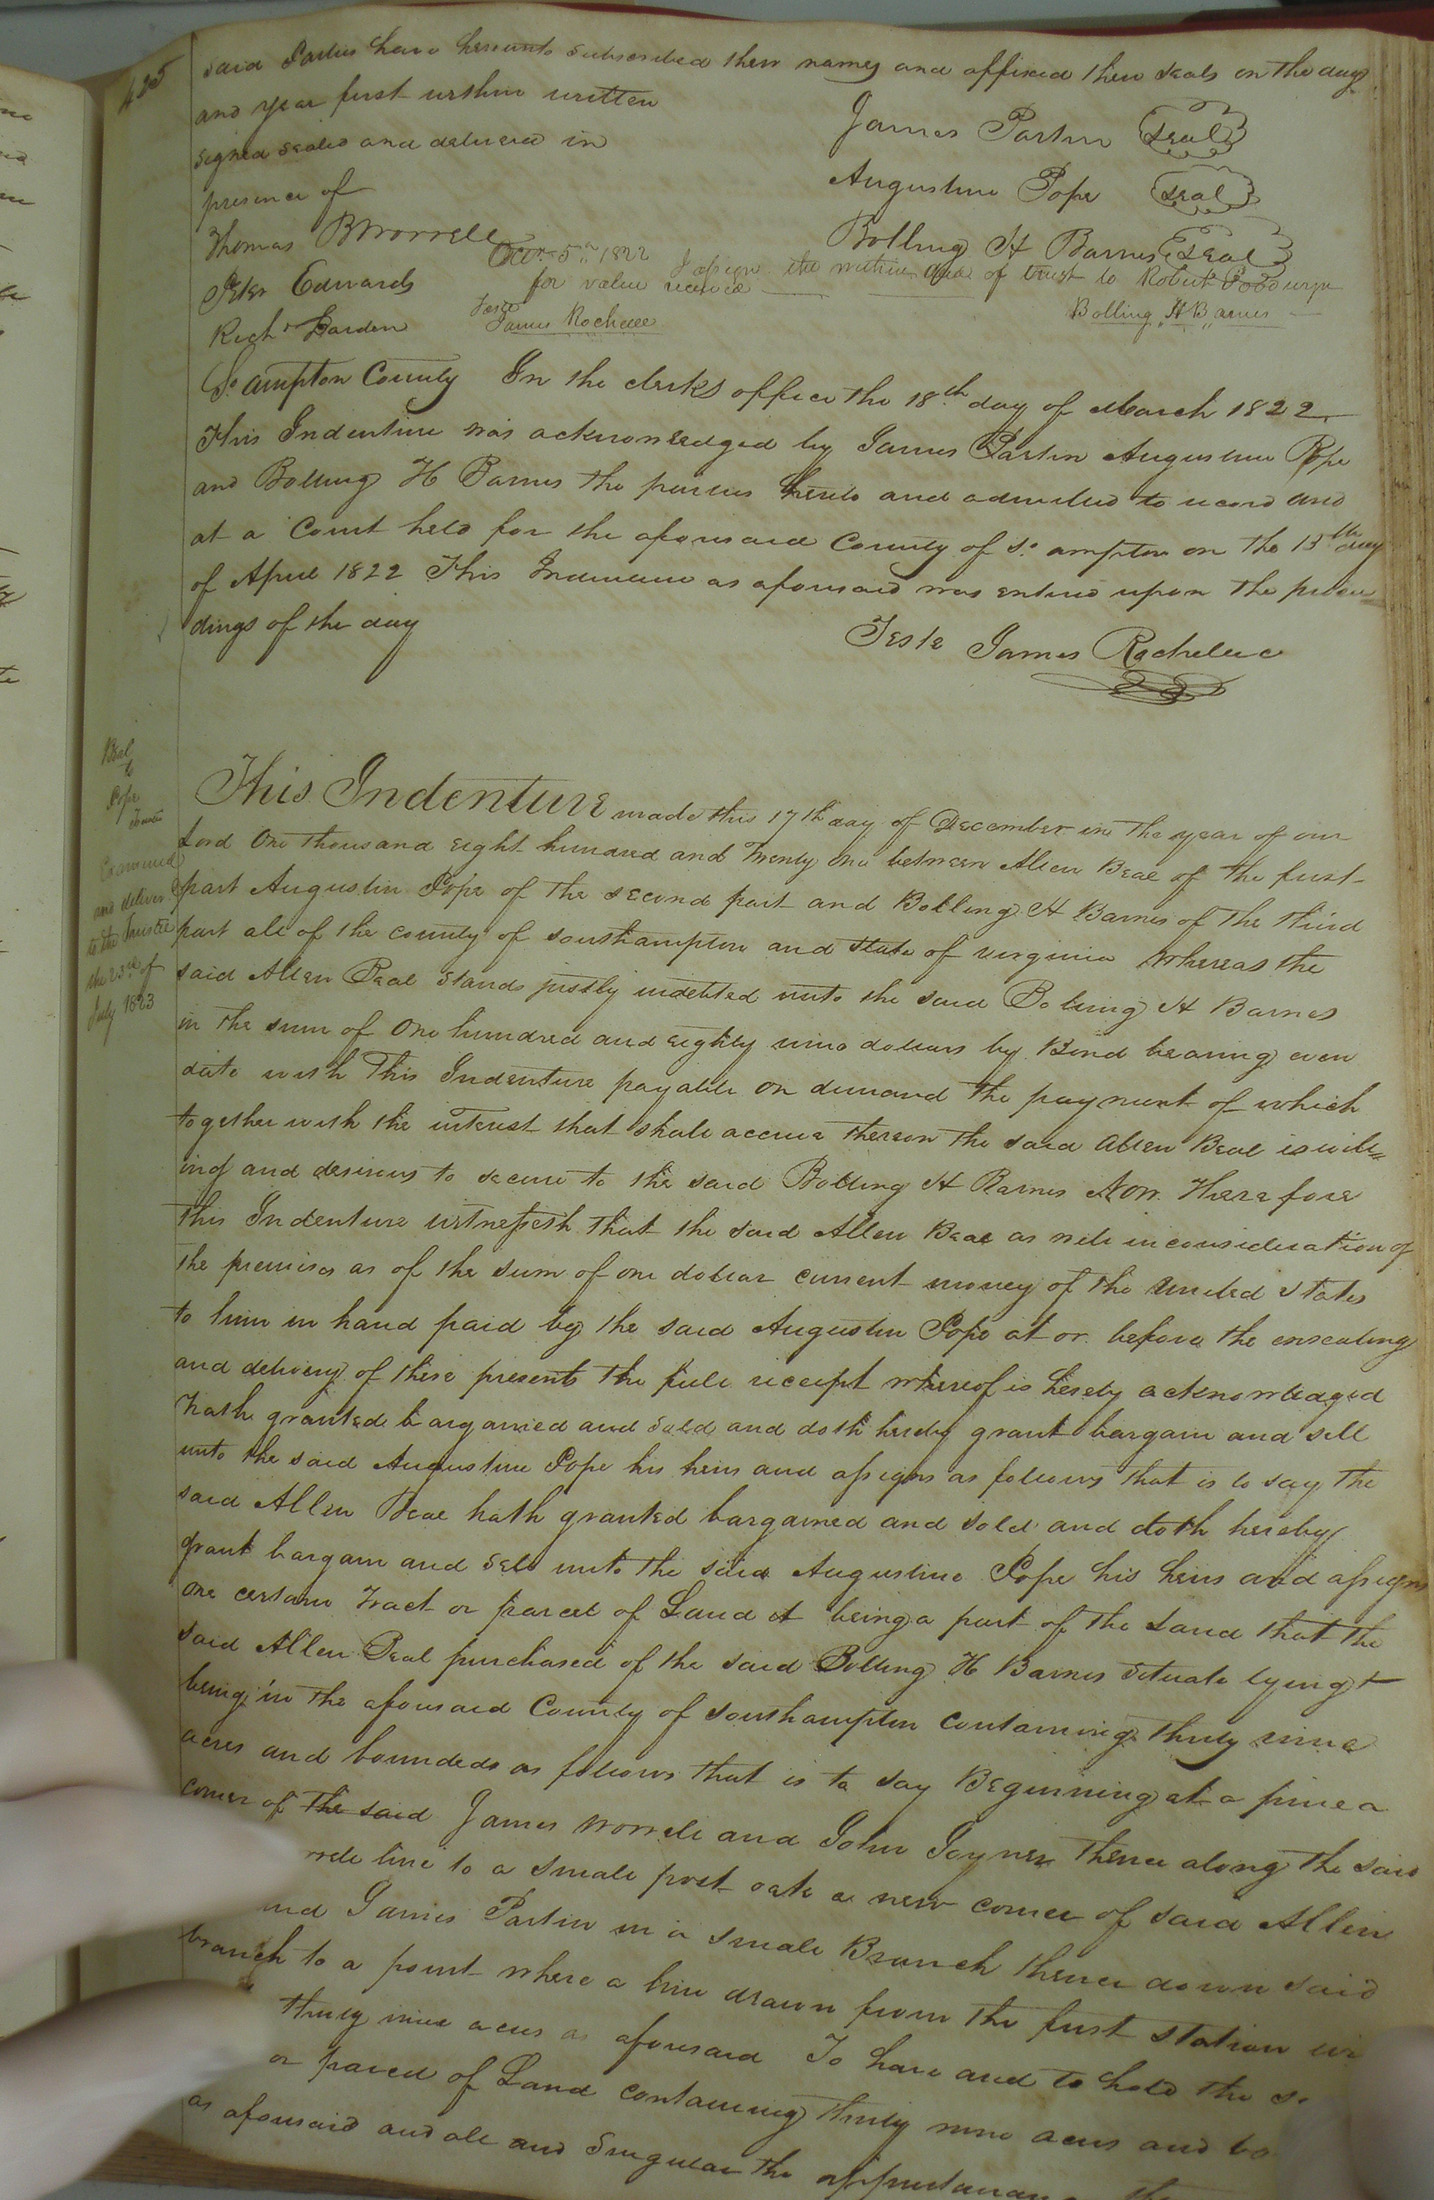 425
said Parties have hereunto subscribed their names and affixed their seals on the day
and year first within written
signed sealed and delivered in
presence of
James Parten seal
Augustine Pope seal
Bolling H Barnes seal
Thomas B Worrell
Peter Edwards
Richd Darden
Octr 5th 1822
for value received I assign the within deed of trust to Robert Goodwyn
Bolling H Barnes
Teste
James Rochelle
So ampton County In the clerks office the 18th day of March 1822
This Indenture was acknowledged by James Partin Augustine Pope
and Bolling H Barnes the parties hereto and admitted to record and
at a Court held for the aforesaid County of So ampton on the 15th day
of April 1822 This Indenture as aforesaid was entered upon the procee
dings of the day
Teste James Rochelle
Beal
to
Pope
Trustee
Examined
and deliverd
to the Trustee
the 23rd of
July 1823
This Indenture made this 17th day of December in the year of our
Lord One thousand eight hundred and Twenty one between Allen Beal of the first
part Augustin Pope of the second part and Bolling H Barnes of the third
part all of the county of southampton and state of virginia Whereas the
said Allen Beal stands justly indebted unto the said Bolling H Barnes
in the sum of One hundred and eighty nine dollars by Bond bearing even
date with This Indenture payable on demand the payment of which
together with the interest that shall accrue thereon the said Allen Beal is will=
ing and desirous to secure to the said Bolling H Barnes Now Therefore
this Indenture witnesseth that the said Allen Beal as well in consideration of
the premises as of the sum of one dollar current money of the United States
to him in hand paid by the said Augustin Pope at or before the ensealing
and delivery of these presents the full receipt whereof is hereby acknowledged
hath granted bargained and sold and doth hereby grant bargain and sell
unto the said Augustine Pope his heirs and assigns as follows that is to say the
said Allen Beal hath granted bargained and sold and doth hereby
grant bargain and sell unto the said Augustine Pope his heirs and assigns
one certain Tract or parcel of Land it being a part of the Land that the
said Allen Beal purchased of the said Bolling H Barnes situate lying &
being in the aforesaid County of southampton containing thirty nine
acres and bounded as follows that is to say Beginning at a pine a
corner of the said James Worrell and John Joyner thence along the said
rrell line to a small post oak a new corner of said Allen
and James Partin in a small Branch thence down said
branch to a point where a line drawn from the first station wi
thirty nine acres as aforesaid To have and to hold the s
or parcel of Land containing thirty nine acres and bo
as aforesaid and all and Singular the appurtenan